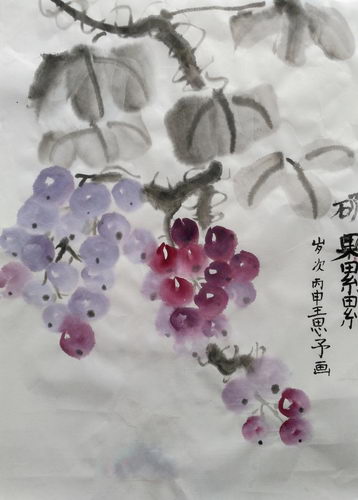 硕果累累
岁次丙申王思予画